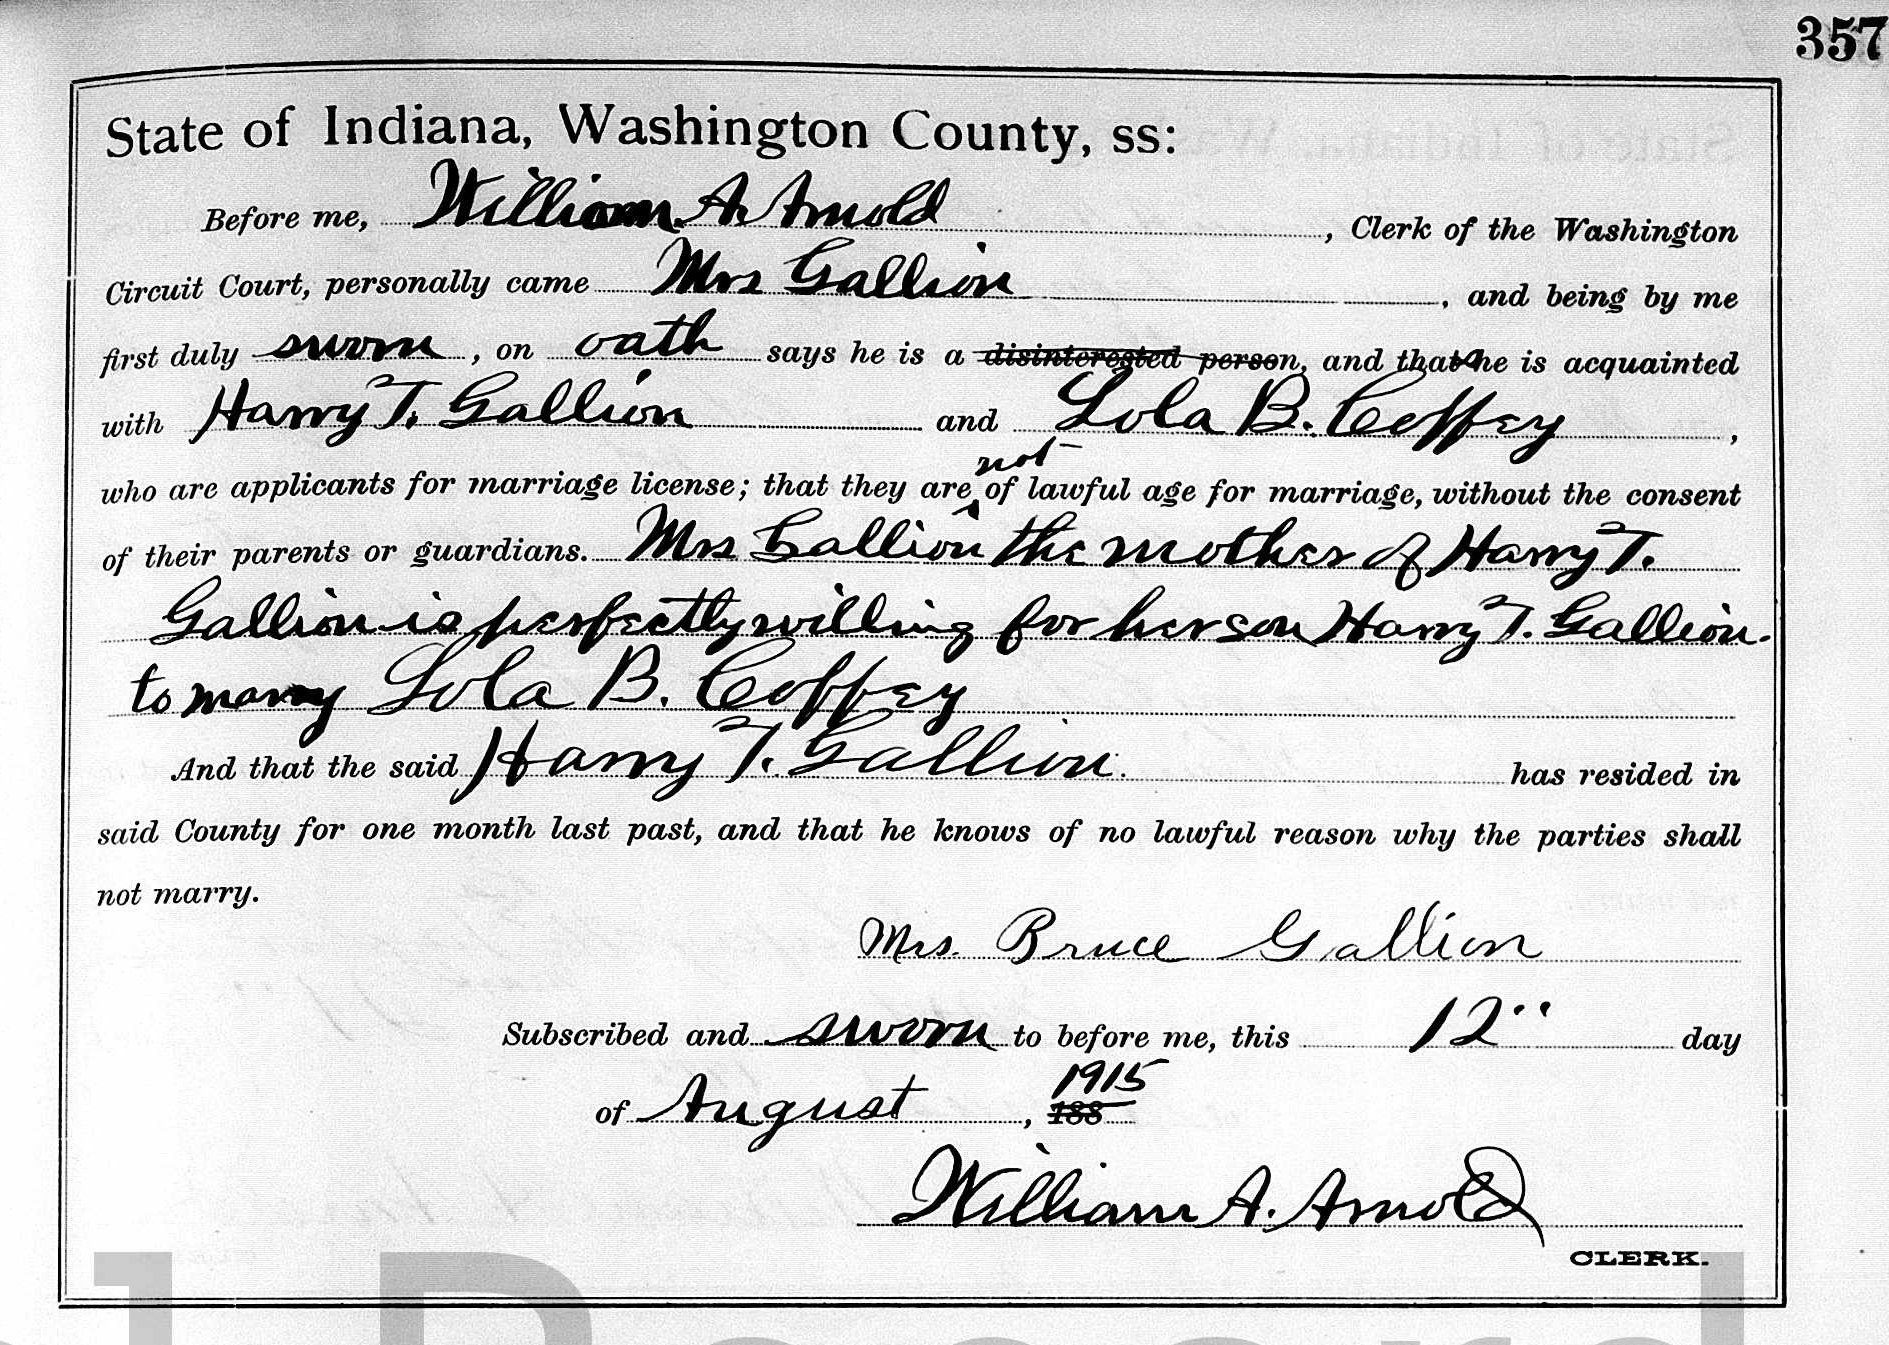 357
State of Indiana, Washington County, ss:
Before me, William A. Arnold, Clerk of the Washington
Circuit Court, personally came Mrs Gallion, and being by me
first duly sworn, on oath says he is a disinterested person, and that he is acquainted
with Harry T. Gallion and Lola B. Coffey,
not
who are applicants for marriage license; that they are of lawful age for marriage, without the consent
of their parents or guardians. Mrs Gallion the mother of Harry T.
Gallion is perfectly willing for her son Harry T. Gallion.
to marry Lola B. Coffey
And that the said Harry T. Gallion. has resided in
said County for one month last past, and that he knows of no lawful reason why the parties shall
not marry.
Mrs. Bruce Gallion
Subscribed and sworn to before me, this 12" day
1915
of August, 188
William A. Arnold
CLERK.